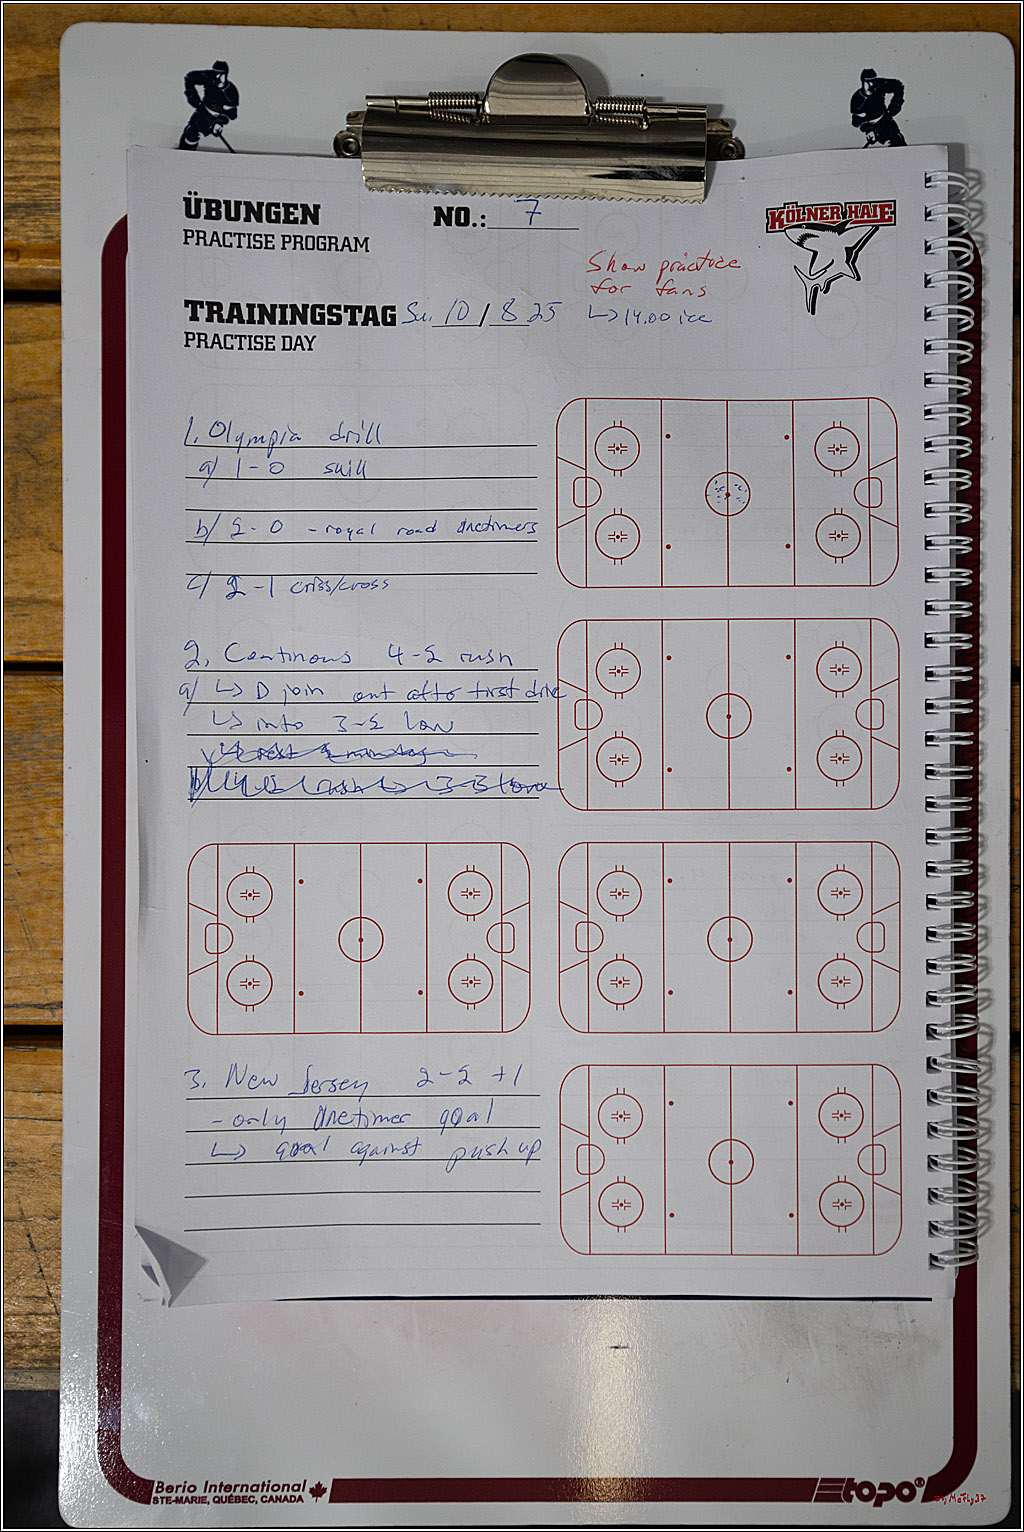 ÜBUNGEN
PRACTISE PROGRAM
NO.: 7
KÖLNER HAIE
Show practice
for fans
↳ 14.00 ice
TRAININGSTAG Su. 10 / 8 25
PRACTISE DAY
1. Olympia drill
a/ 1-0 skill
b/ 2-0 - royal road Onetimers
c/ 2-1 criss/cross
2. Continous 4-2 rush
a/ ↳ D join out after first drive
↳ into 3-2 low
3. New Jersey 2-2 +1
- only Onetimer goal
↳ goal against push up
Berio International
STE-MARIE, QUÉBEC, CANADA
topo®